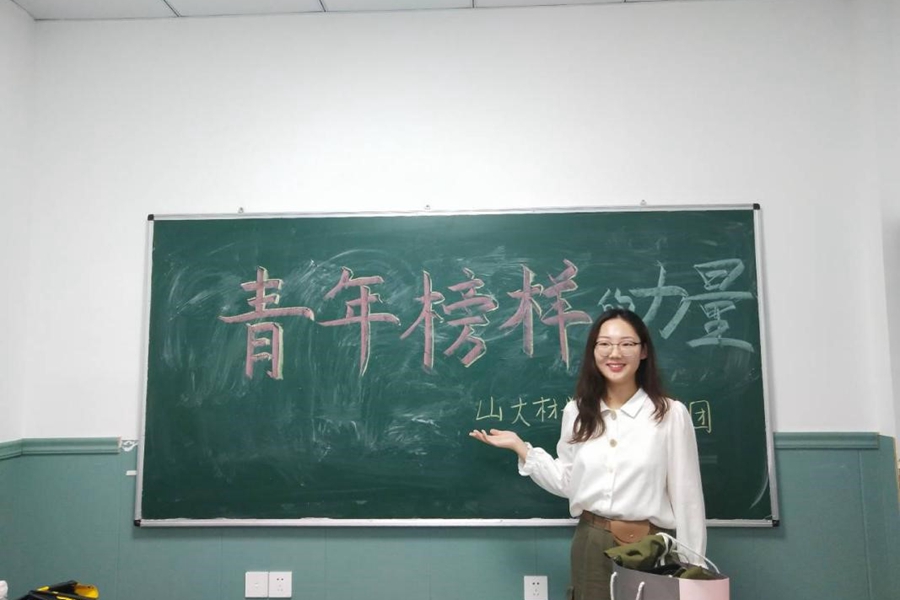 青年榜样的力量
山大材 团